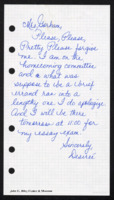 Mrs. Gorham,
Please, Please,
Pretty Please forgive
me. I am on the
homecoming committee
and what was
suppose to be a brief
errand ran into a
lengthy one. I do apologize.
And I will be there
tomorrow at 11:00 for
my essay exam.
Sincerely,
Desirée